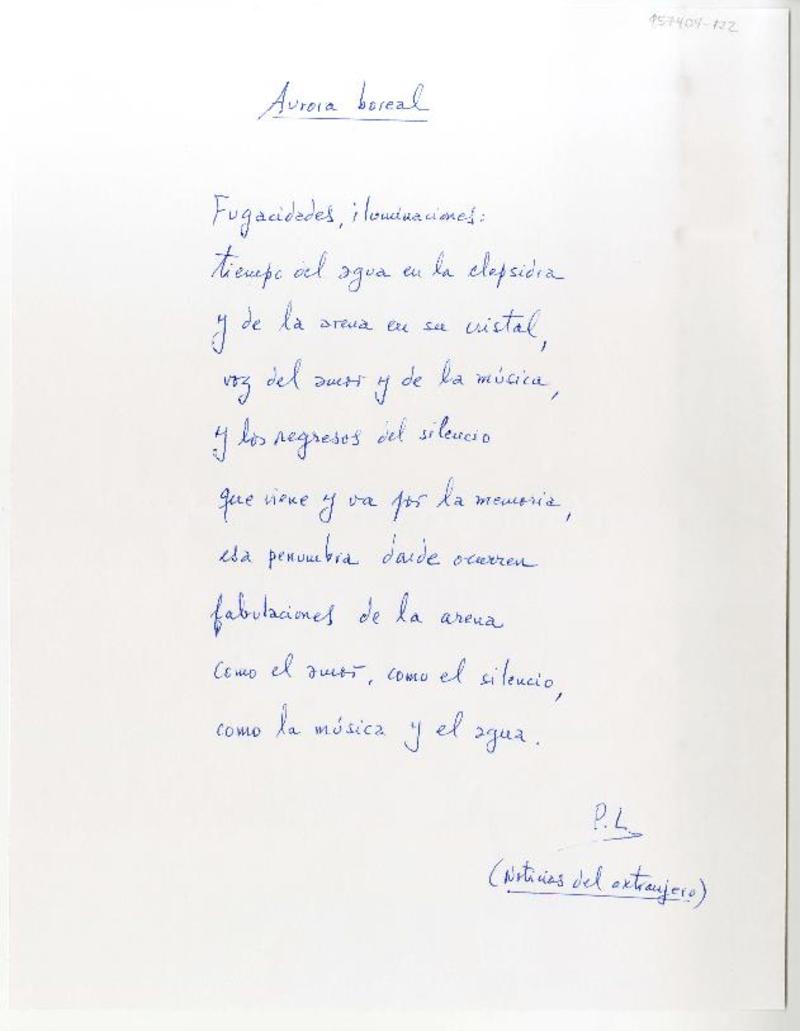 157404-122
Aurora boreal
Fugacidades, iluminaciones:
tiempo del agua en la clepsidra
y de la arena en su cristal,
voz del amor y de la música,
y los regresos del silencio
que viene y va por la memoria,
esa penumbra donde ocurren
fabulaciones de la arena
como el amor, como el silencio,
como la música y el agua.
P.L.
(Noticias del extranjero)